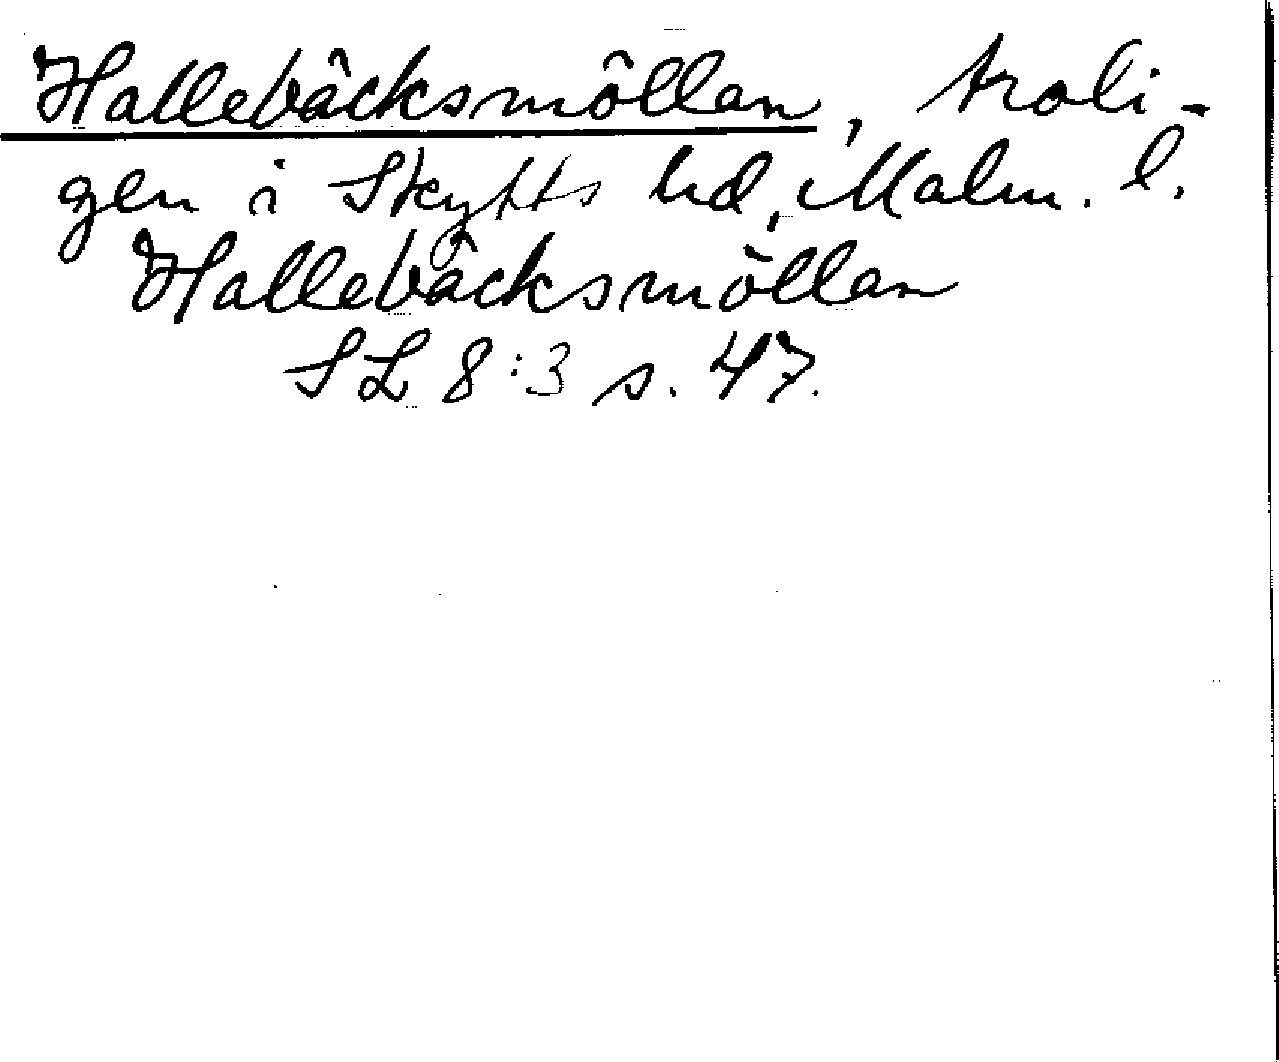 Hallebäcksmöllan, troli-
gen i Skytts hd, Malm. l.
Hallebäcksmöllan
SL 8:3 s. 47.